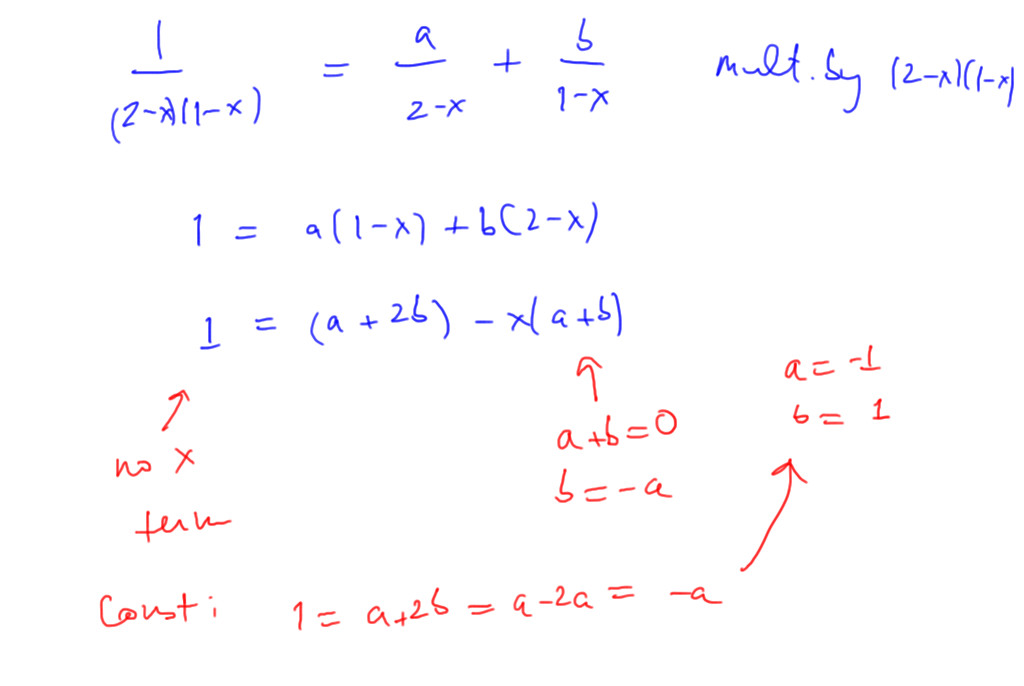 1/((2-x)(1-x)) = a/(2-x) + b/(1-x) mult. by (2-x)(1-x)
1 = a(1-x) + b(2-x)
1 = (a + 2b) - x(a+b)
no x
term
a+b=0
b=-a
a = -1
b = 1
Const: 1 = a+2b = a-2a = -a